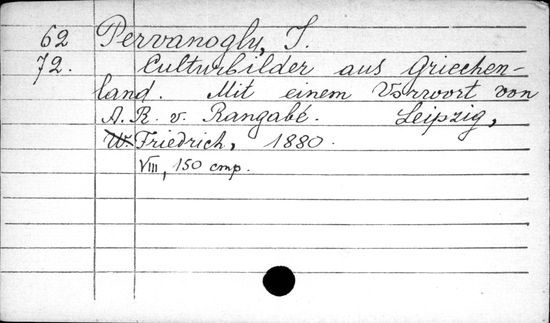 62 Pervanogly, I.
72. Culturbilder aus Griechen-
land. Mit einem Vorwort von
A. R. v. Rangabé. Leipzig,
W. Friedrich, 1880.
VIII, 150 стр.